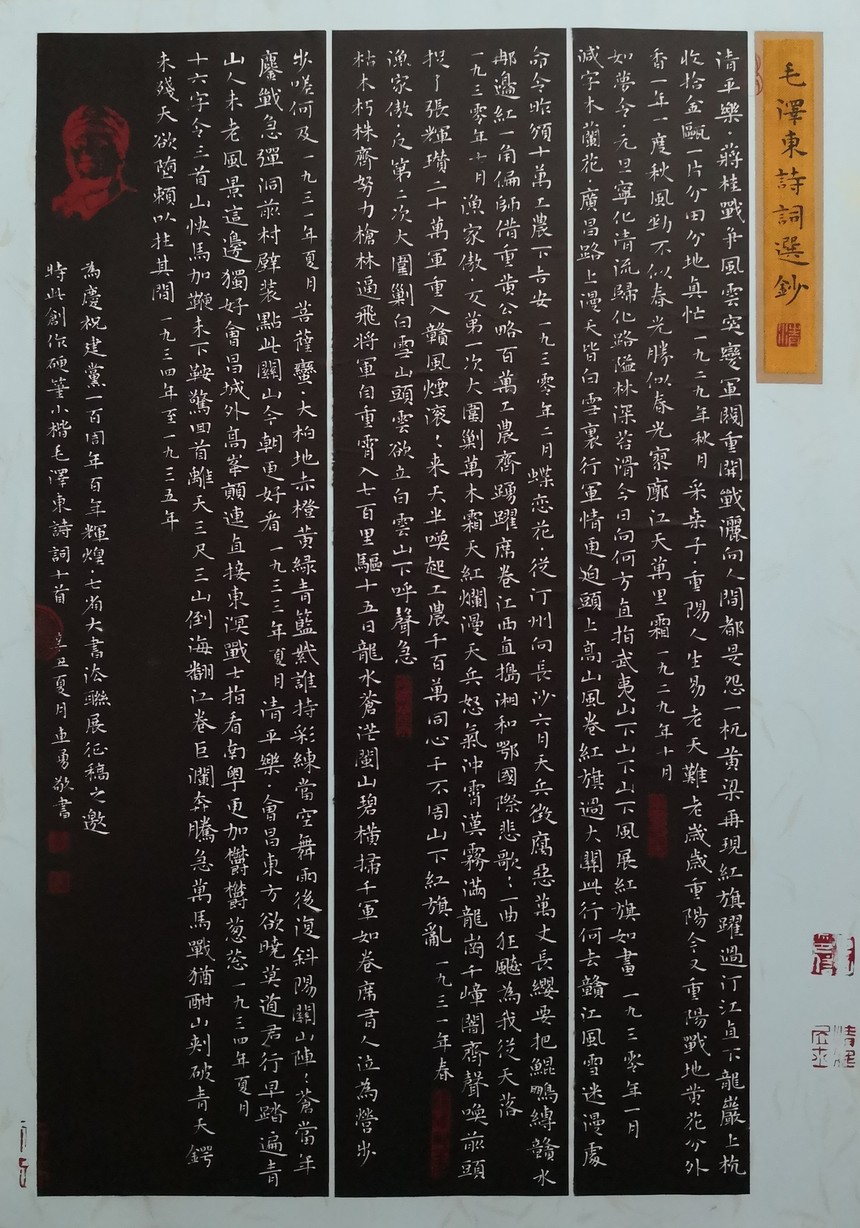 毛澤東詩詞選鈔
清平樂·蔣桂戰爭風雲突變軍閥重開戰灑向人間都是怨一枕黃粱再現紅旗躍過汀江直下龍巖上杭
收拾金甌一片分田分地真忙一九二九年秋月采桑子·重陽人生易老天難老歲歲重陽今又重陽戰地黃花分外
香一年一度秋風勁不似春光勝似春光寥廓江天萬里霜一九二九年十月
如夢令·元旦寧化清流歸化路隘林深苔滑今日向何方直指武夷山下山下山下風展紅旗如畫一九三零年一月
減字木蘭花廣昌路上漫天皆白雪裏行軍情更迫頭上高山風卷紅旗過大關此行何去贛江風雪迷漫處
命令昨頒十萬工農下吉安一九三零年二月蝶恋花從汀州向長沙六月天兵徵腐惡萬丈長纓要把鯤鵬縛贛水
那邊紅一角偏師借重黃公略百萬工農齊踴躍席卷江西直搗湘和鄂國際悲歌歌一曲狂飈為我從天落
一九三零年七月漁家傲·反第一次大圍剿萬木霜天紅爛漫天兵怒氣沖霄漢霧滿龍崗千嶂闇齊聲喚前頭
捉了張輝瓚二十萬軍重入贛風煙滾滾来天半喚起工農千百萬同心干不周山下紅旗亂一九三一年春
漁家傲反第二次大圍剿白雲山頭雲欲立白雲山下呼聲急
枯木朽株齊努力槍林逼飛將軍自重霄入七百里驅十五日龍水蒼茫閩山碧橫掃千軍如卷席有人泣為營步
步嗟何及一九三一年夏月菩薩蠻·大柏地赤橙黃綠青藍紫誰持彩練當空舞雨後復斜陽關山陣陣蒼當年
鏖戰急彈洞前村壁裝點此關山今朝更好看一九三三年夏月清平樂·會昌東方欲曉莫道君行早踏遍青
山人未老風景這邊獨好會昌城外高峯顛連直接東溟戰士指看南粵更加欝欝葱葱一九三四年夏月
十六字令三首山快馬加鞭未下鞍驚回首離天三尺三山倒海翻江卷巨瀾奔騰急萬馬戰猶酣山刺破青天鍔
未殘天欲墮賴以拄其間一九三四年至一九三五年
為慶祝建黨一百周年百年輝煌·七省大書法聯展征稿之邀
特此創作硬筆小楷毛澤東詩詞十首 辛丑夏月 勇敬書